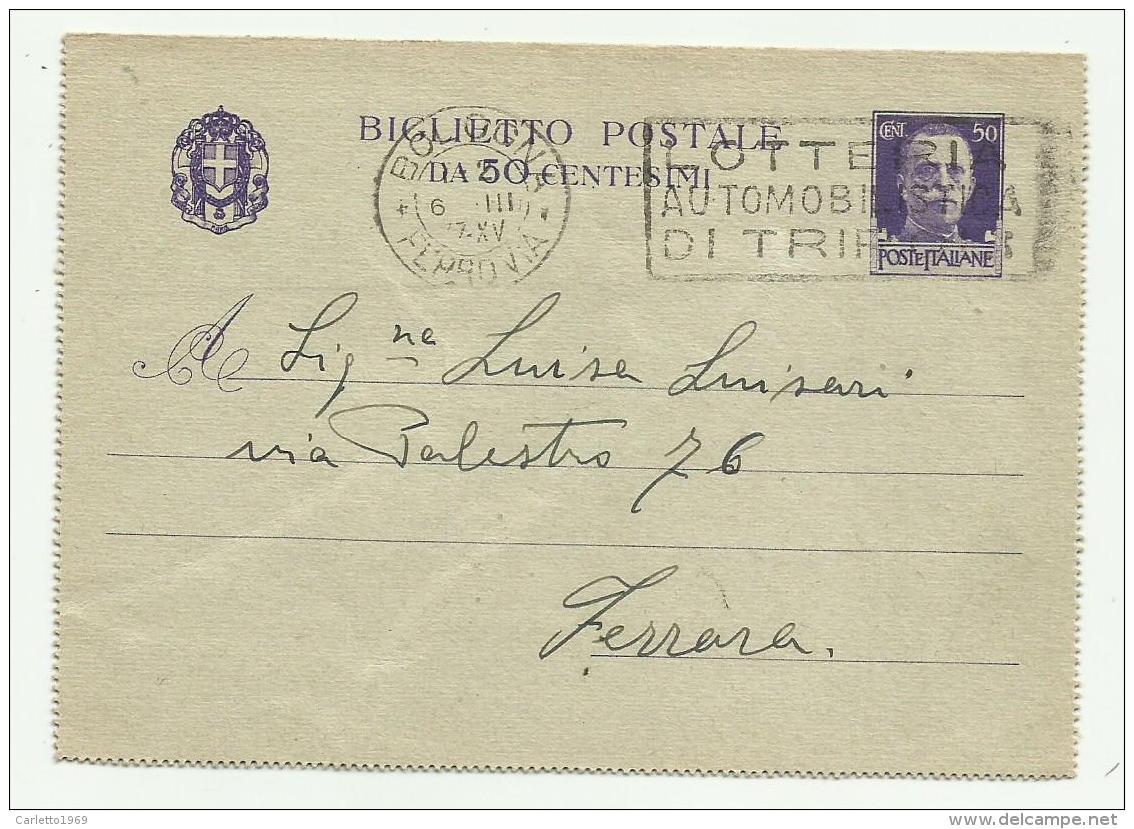 BIGLIETTO POSTALE
DA 50 CENTESIMI
BOLOGNA
6 III
XV
FERROVIA
LOTTERIA
AUTOMOBILISTICA
DI TRIPOLI
CENT. 50
POSTE ITALIANE
A Sig.na Luisa Luisari
via Palestro 76
Ferrara.
Carletto1969
delcampe.net